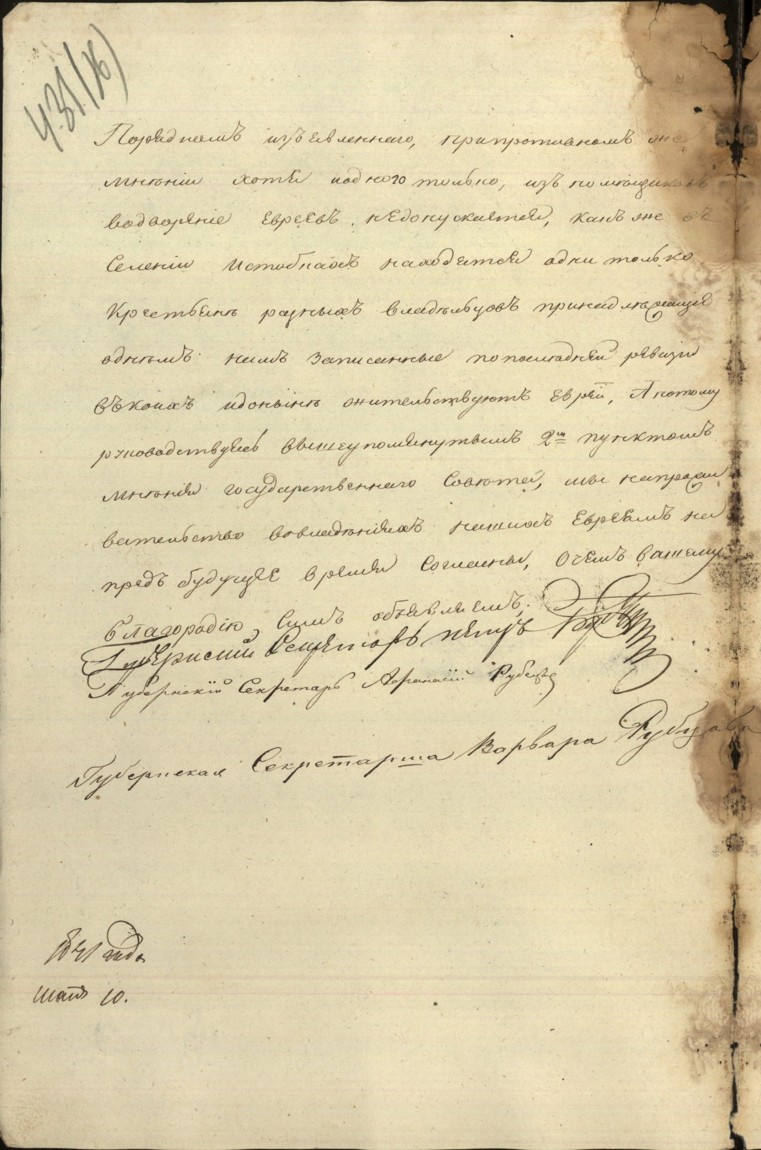 431 (Ж)
Порядкомъ изъявленнаго, припротивномъ же
мнѣніи хотя иодного только, изъ помѣщиковъ
водворяніе Евреевъ, недопускается, какъ же въ
селеніи Истобкахъ находятся одни только
Крестьяне разныхъ владѣльцовъ принадлѣжащіе
однѣмъ намъ записанные попослѣдней ревизіи
въ коихъ идонынѣ жительствуютъ Евреи, Апотому
руководствуясь вышеупомянутымъ 2мъ пунктомъ
мнѣнія государственнаго Совѣта, мы на
вательство вовладѣніяхъ нашихъ Евреямъ на
предъ будущее время Согласны, Очемъ вашему
Благородію Симъ объявляемъ,
Губернский Секретарь
Губернскій Секретарь Афанасій Рубецъ
Губернская Секретарша Варвара Рубцова
1841 года
10.